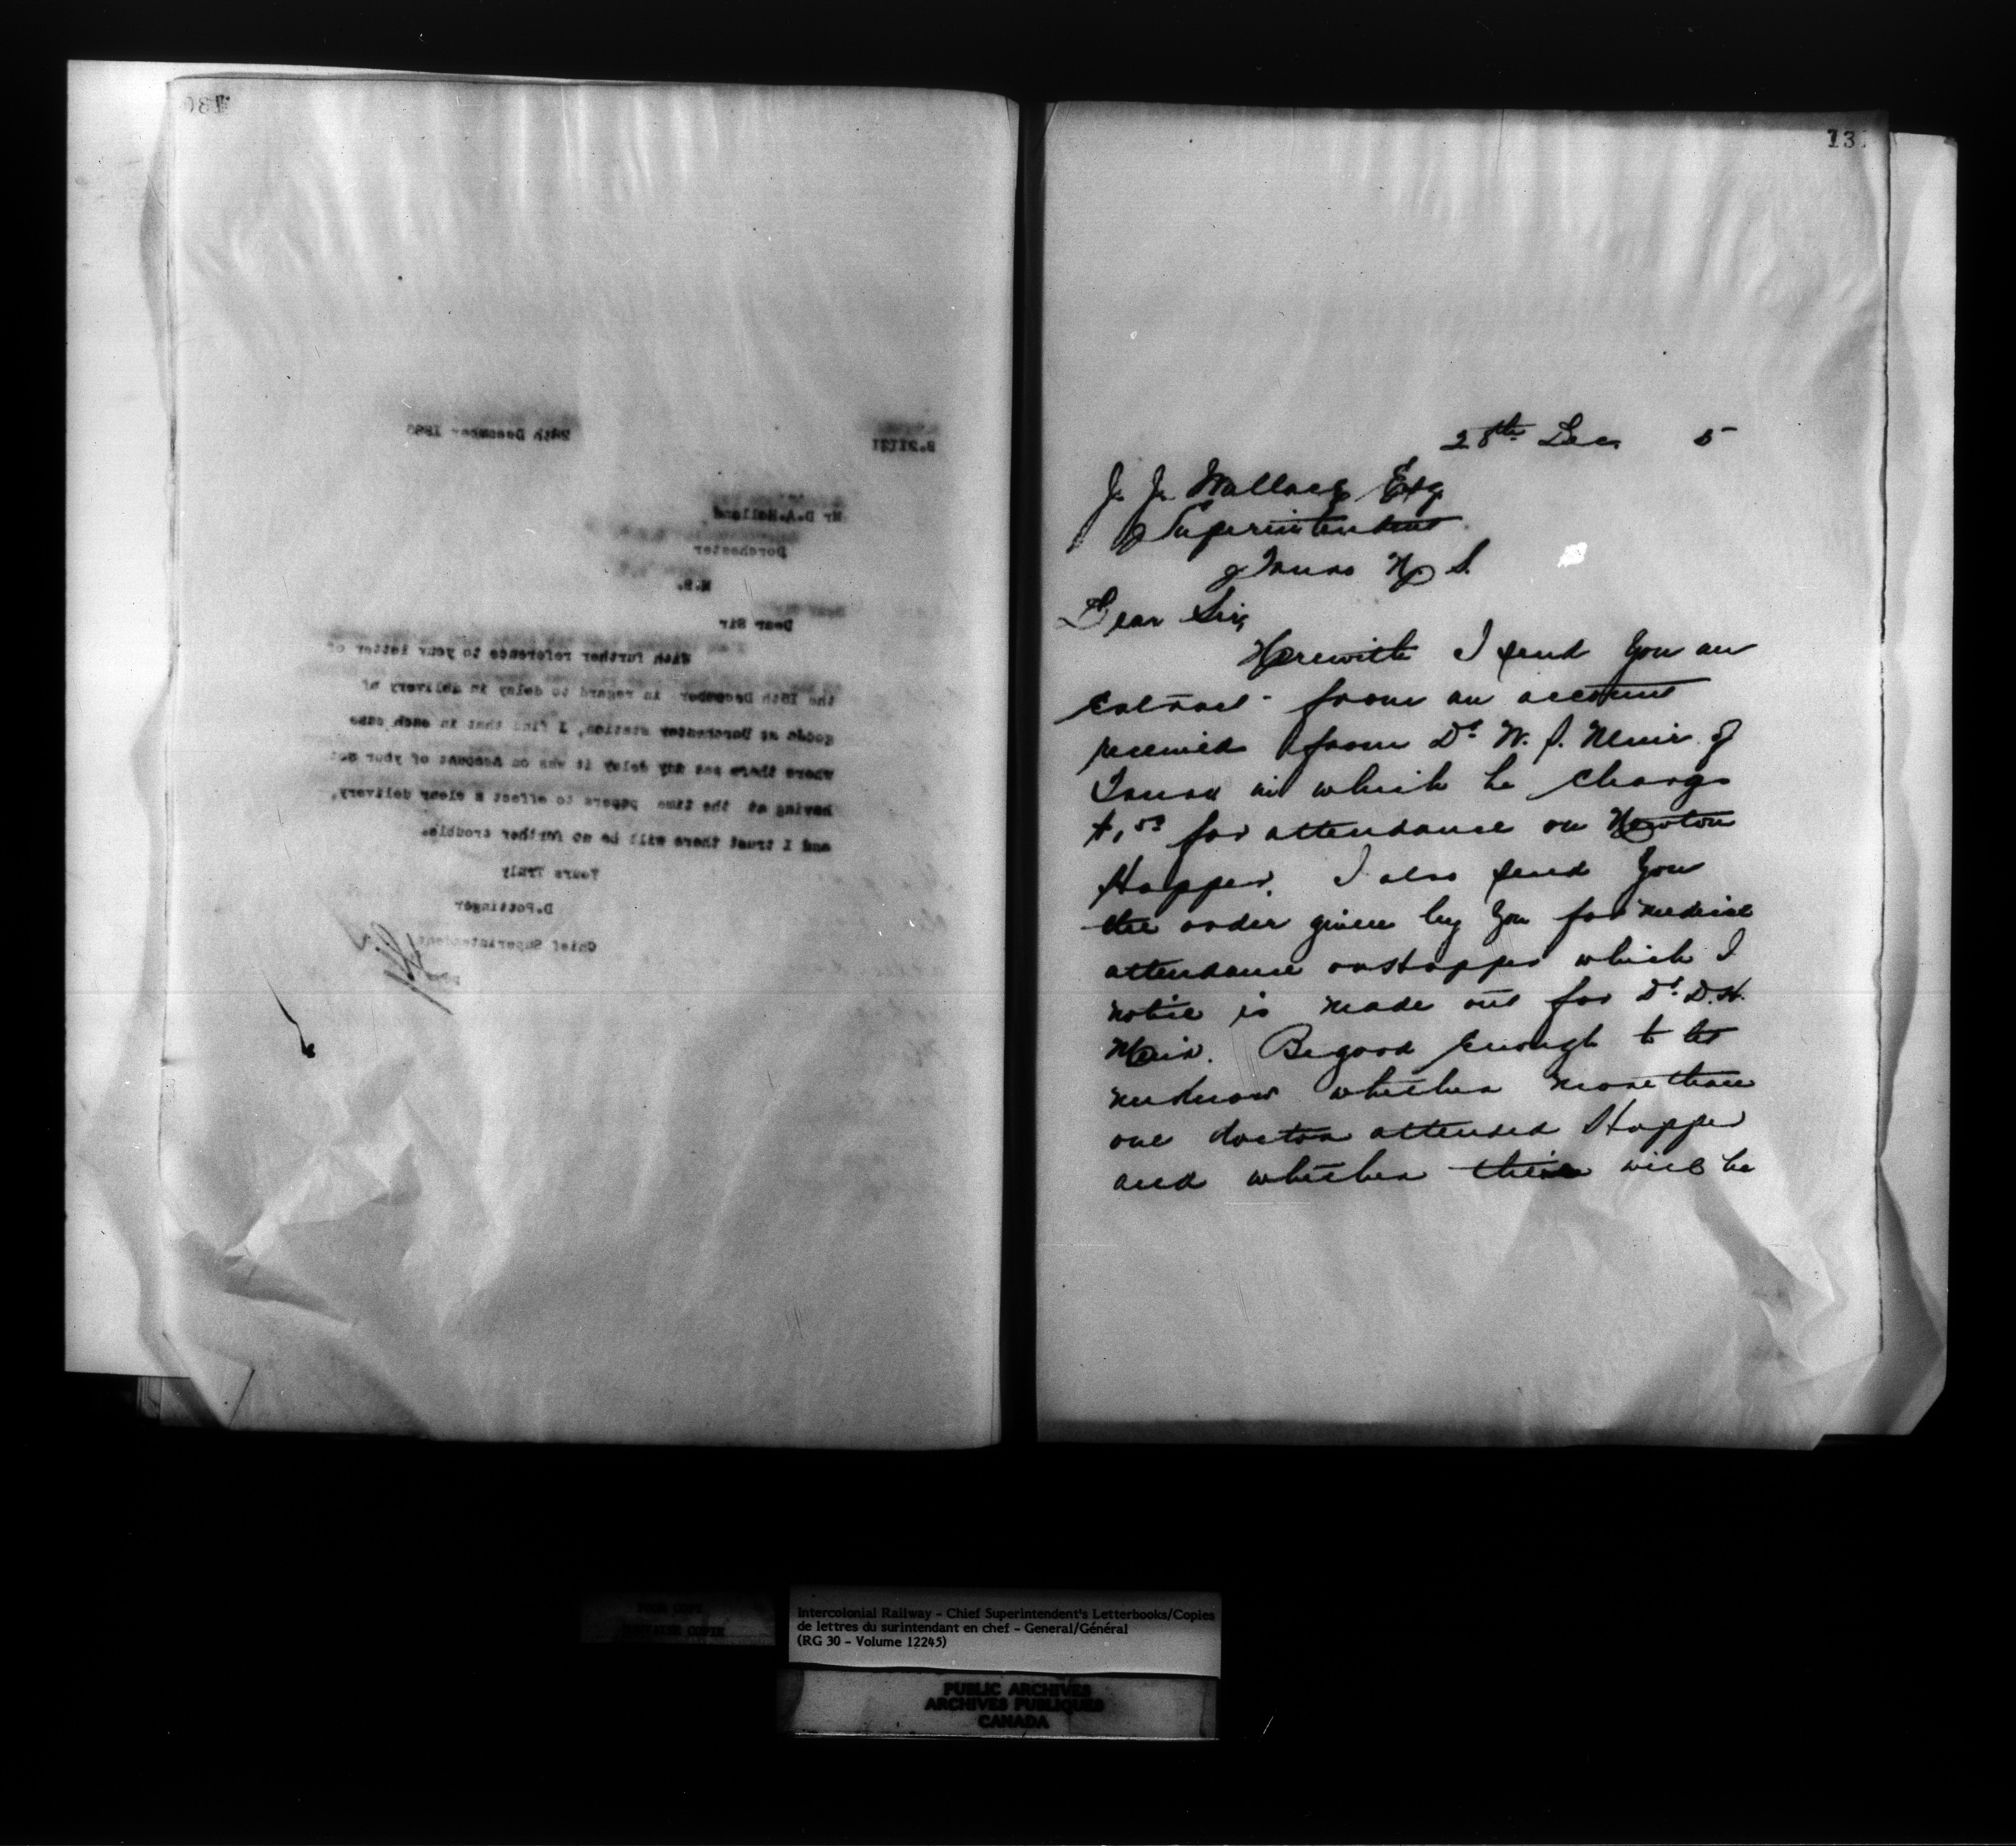 130
B.21121
28th December 1885
Mr D.A.Holland
Dorchester
N.B.
Dear Sir
With further reference to your letter of
the 18th December in regard to delay in delivery of
goods at Dorchester station, I find that in each case
where there was any delay it was on account of your not
having at the time papers to effect a clear delivery,
and I trust there will be no further trouble.
Yours Truly
D.Pottinger
Chief Superintendent
131
28th Dec 5
J. J. Wallace Esq
Superintendent
Truro N. S.
Dear Sir,
Herewith I send you an
extract from an account
received from Dr W. S. Muir of
Truro in which he charges
$1.50 for attendance on Newton
Hopper. I also send you
the order given by you for medical
attendance on Hopper which I
notice is made out for Dr. D. H.
Muir. Be good enough to let
me know whether more than
one doctor attended Hopper
and whether there will be
POOR COPY
MAUVAISE COPIE
Intercolonial Railway - Chief Superintendent's Letterbooks/Copies
de lettres du surintendant en chef - General/Général
(RG 30 - Volume 12245)
PUBLIC ARCHIVES
ARCHIVES PUBLIQUES
CANADA